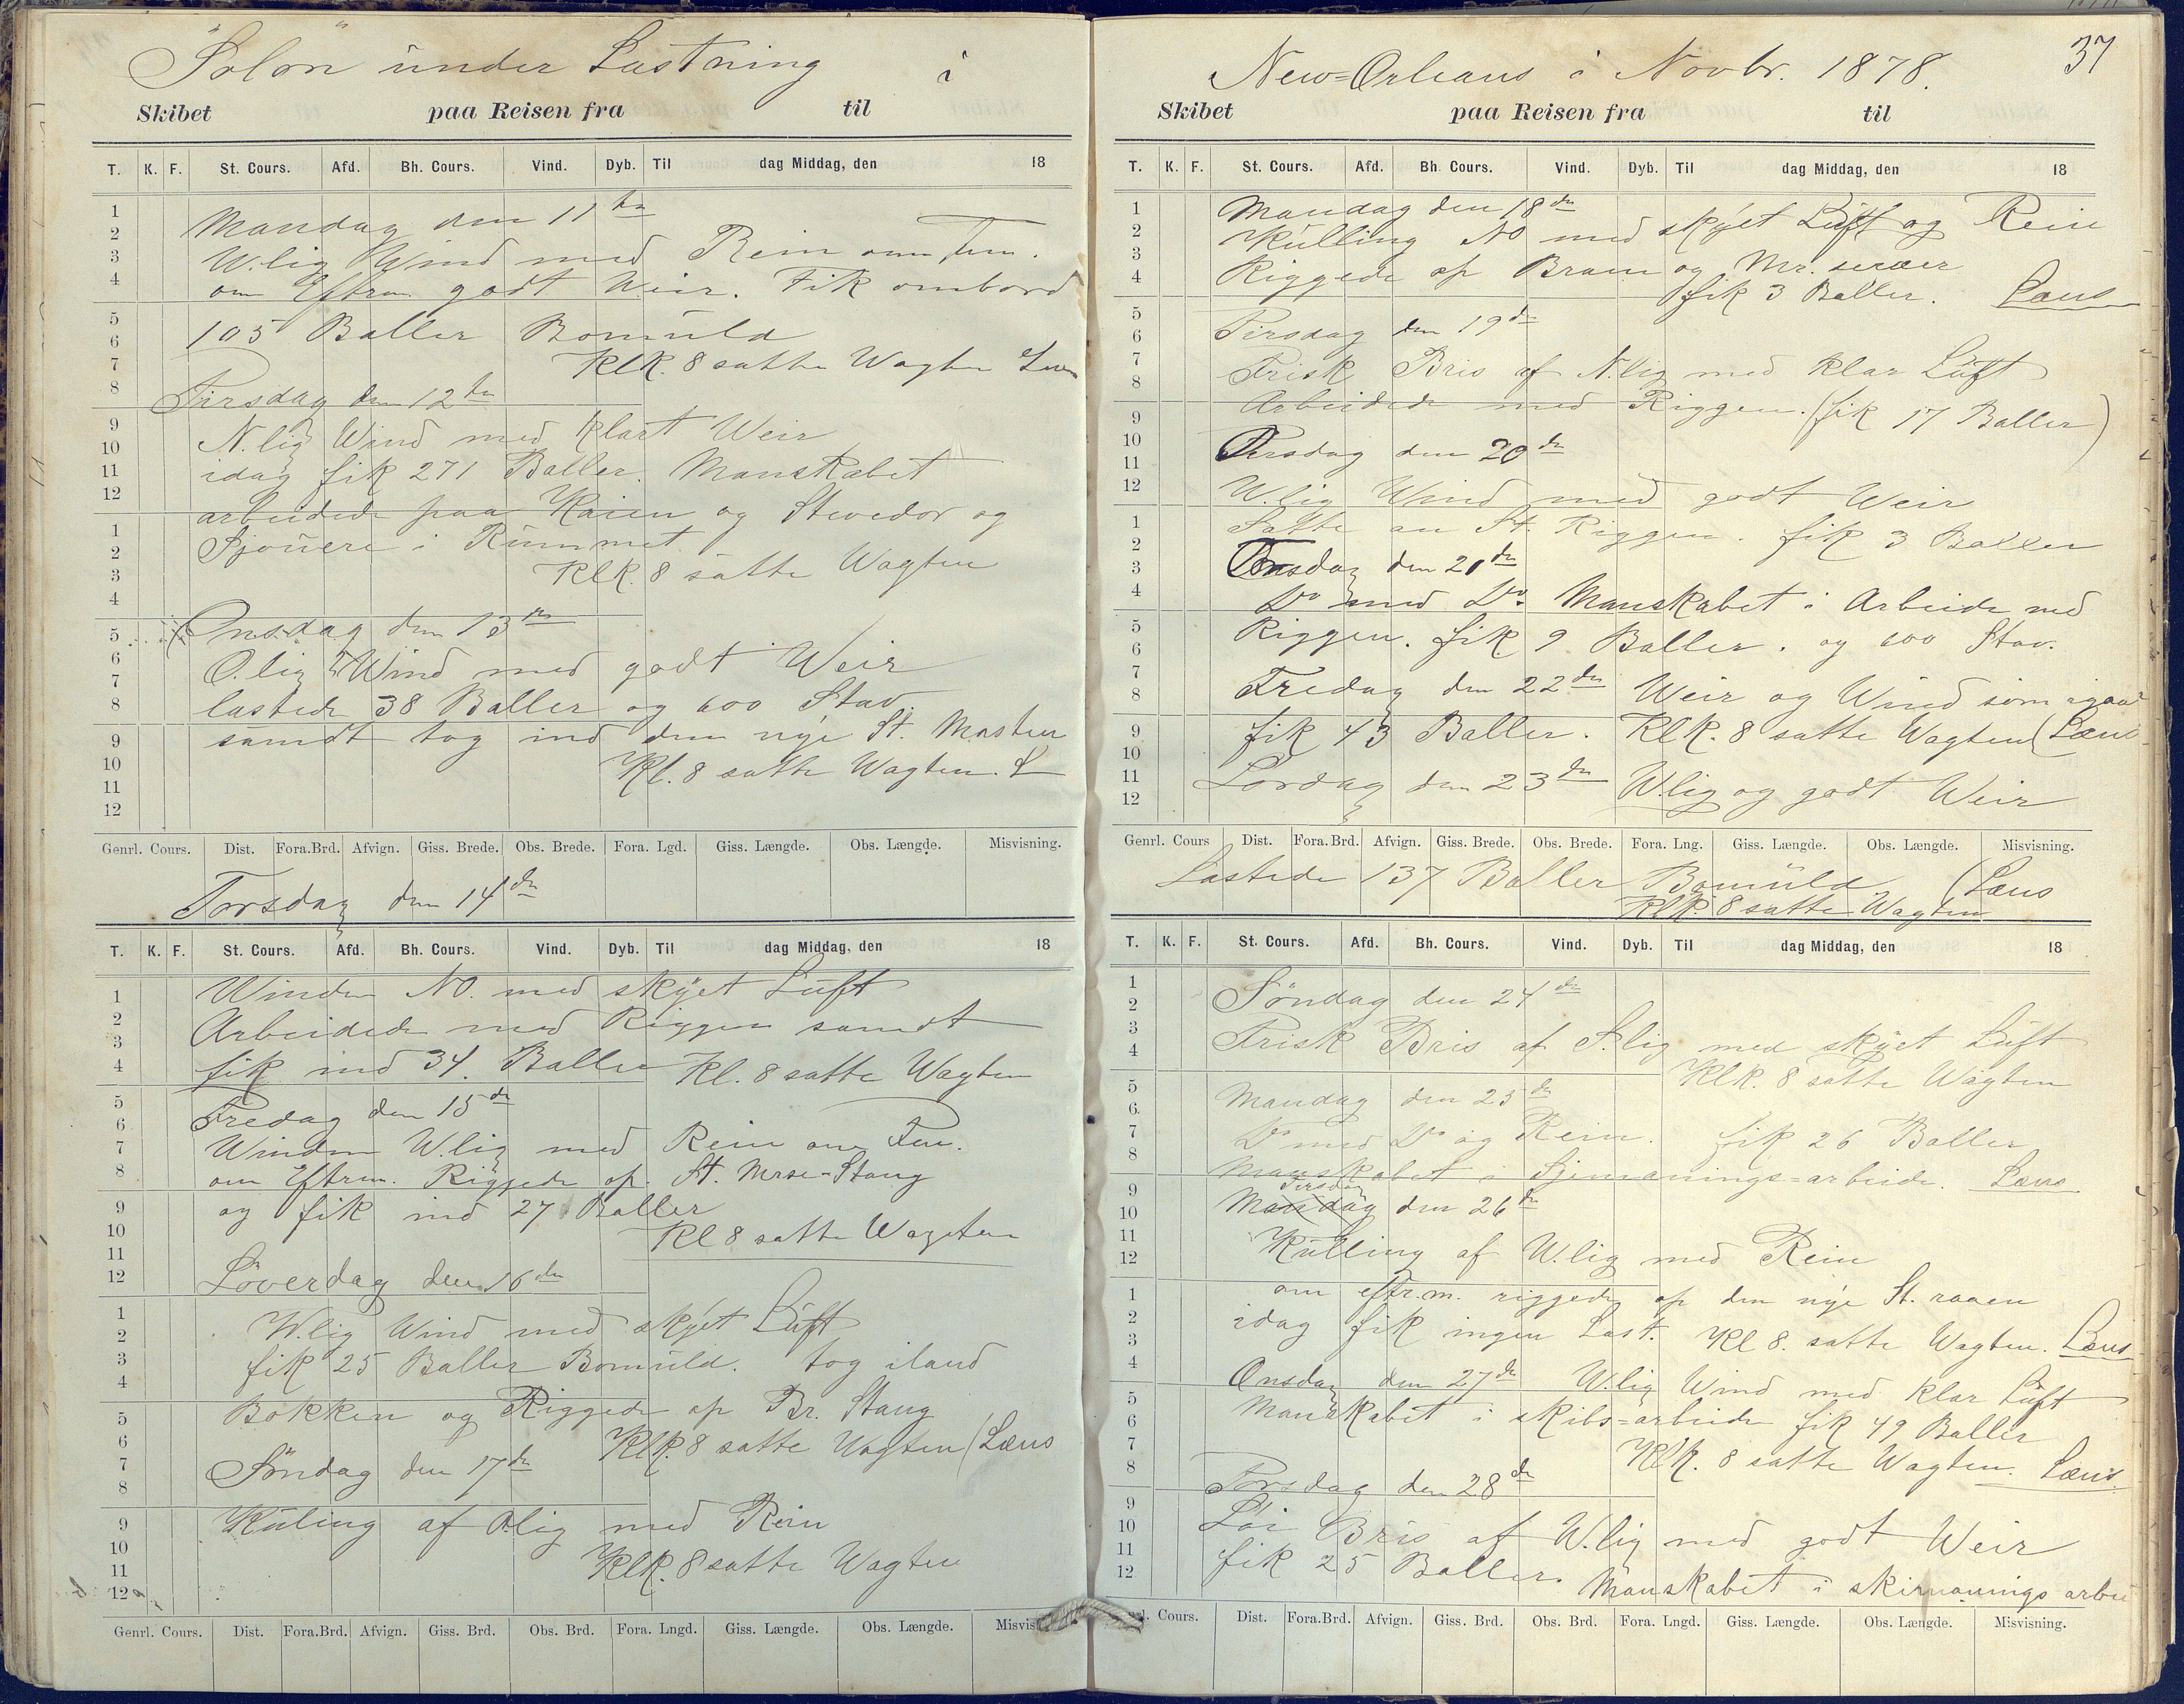 "Solon" under Lastning i
Skibet paa Reisen fra til
T. K. F. St. Cours. Afd. Bh. Cours. Vind. Dyb. Til dag Middag, den 18
1
2
3
4
5
6
7
8
9
10
11
12
1
2
3
4
5
6
7
8
9
10
11
12
Mandag den 11te
W.lig Wind med Rein om Fm.
om Eftrm. godt Weir. Fik ombord
105 Baller Bomüld
Klk. 8 satte Wagten
Tirsdag den 12te
N.lig Wind med klart Weir
idag fik 271 Baller. Manskabet
arbeidede paa Kaien og Stevedor og
Sjouere i Rümmet
Klk. 8 satte Wagten
Onsdag den 13de
O.lig Wind med godt Weir
lastede 38 Baller og 600 Stav.
samdt tog ind den nye St. Masten
Kl. 8 satte Wagten. L
Genrl. Cours. Dist. Fora.Brd. Afvign. Giss. Brede. Obs. Brede. Fora. Lgd. Giss. Længde. Obs. Længde. Misvisning.
Torsdag den 14de
T. K. F. St. Cours. Afd. Bh. Cours. Vind. Dyb. Til dag Middag, den 18
1
2
3
4
5
6
7
8
9
10
11
12
1
2
3
4
5
6
7
8
9
10
11
12
Winden NO. med skyet Lüft
Arbeidede med Riggen samdt
fik ind 34. Baller Kl. 8 satte Wagten
Fredag den 15de
Winden W.lig med Rein om Fm.
om Eftrm. Riggede op St. Merse-Stang
og fik ind 27 Baller
Kl 8 satte Wagten
Löverdag den 16de
W.lig Wind med skyet Lüft
fik 25 Baller Bomüld. tog iland
Bokken og Riggede op Br. Stang
Klk. 8 satte Wagten (Læns
Söndag den 17de
Küling af Olig med Rein
Klk. 8 satte Wagten
Genrl. Cours. Dist. Fora.Brd. Afvign. Giss. Brd. Obs. Brd. Fora. Lngd. Giss. Længde. Obs. Længde.
37
New=Orleans i Novbr. 1878.
Skibet paa Reisen fra til
T. K. F. St. Cours. Afd. Bh. Cours. Vind. Dyb. Til dag Middag, den 18
1
2
3
4
5
6
7
8
9
10
11
12
1
2
3
4
5
6
7
8
9
10
11
12
Mandag den 18de
Külling NO med skyet Lüft og Rein
Riggede op Bram og Mr.
fik 3 Baller. Læns
Tirsdag den 19de
Frisk Bris af N.lig med klar Lüft
Arbeidede med Riggen. (fik 17 Baller)
den 20de
W.lig Wind med godt Weir
Satte an St. Riggen. fik 3 Baller
den 21de
Do med Do. Manskabet i Arbeide med
Riggen. fik 9 Baller. og 600 Stav.
Fredag den 22de Weir og Wind som igaar
fik 43 Baller. Klk. 8 satte Wagten (Læns
Lördag den 23de W.lig og godt Weir
Genrl. Cours Dist. Fora.Brd. Afvign. Giss. Brede. Obs. Brede. Fora. Lng. Giss. Længde. Obs. Længde. Misvisning.
Lastede 137 Baller Bomüld (Læns
Klk. 8 satte Wagten
T. K. F. St. Cours. Afd. Bh. Cours. Vind. Dyb. Til dag Middag, den 18
1
2
3
4
5
6
7
8
9
10
11
12
1
2
3
4
5
6
7
8
9
10
11
12
Söndag den 24de
Frisk Bris af S.lig med skyet Lüft
Klk. 8 satte Wagten
Mandag den 25de
Do med Do og Rein. fik 26 Baller
Manskabet i arbeide. Læns
Tirsdag
Mandag den 26de
Külling af W.lig med Rein
om eftr.m. riggede op den nye St. raaen
idag fik ingen Last. Kl 8. satte Wagten. Læns
Onsdag den 27de W.lig Wind med klar Lüft
Manskabet i skibs=arbeide fik 49 Baller
Klk. 8 satte Wagten. Læns.
Torsdag den 28de
Löi Bris af W.lig med godt Weir
fik 25 Baller. Manskabet i
Cours. Dist. Fora.Brd. Afvign. Giss. Brd. Obs. Brd. Fora. Lngd. Giss. Længde. Obs. Længde. Misvisning.